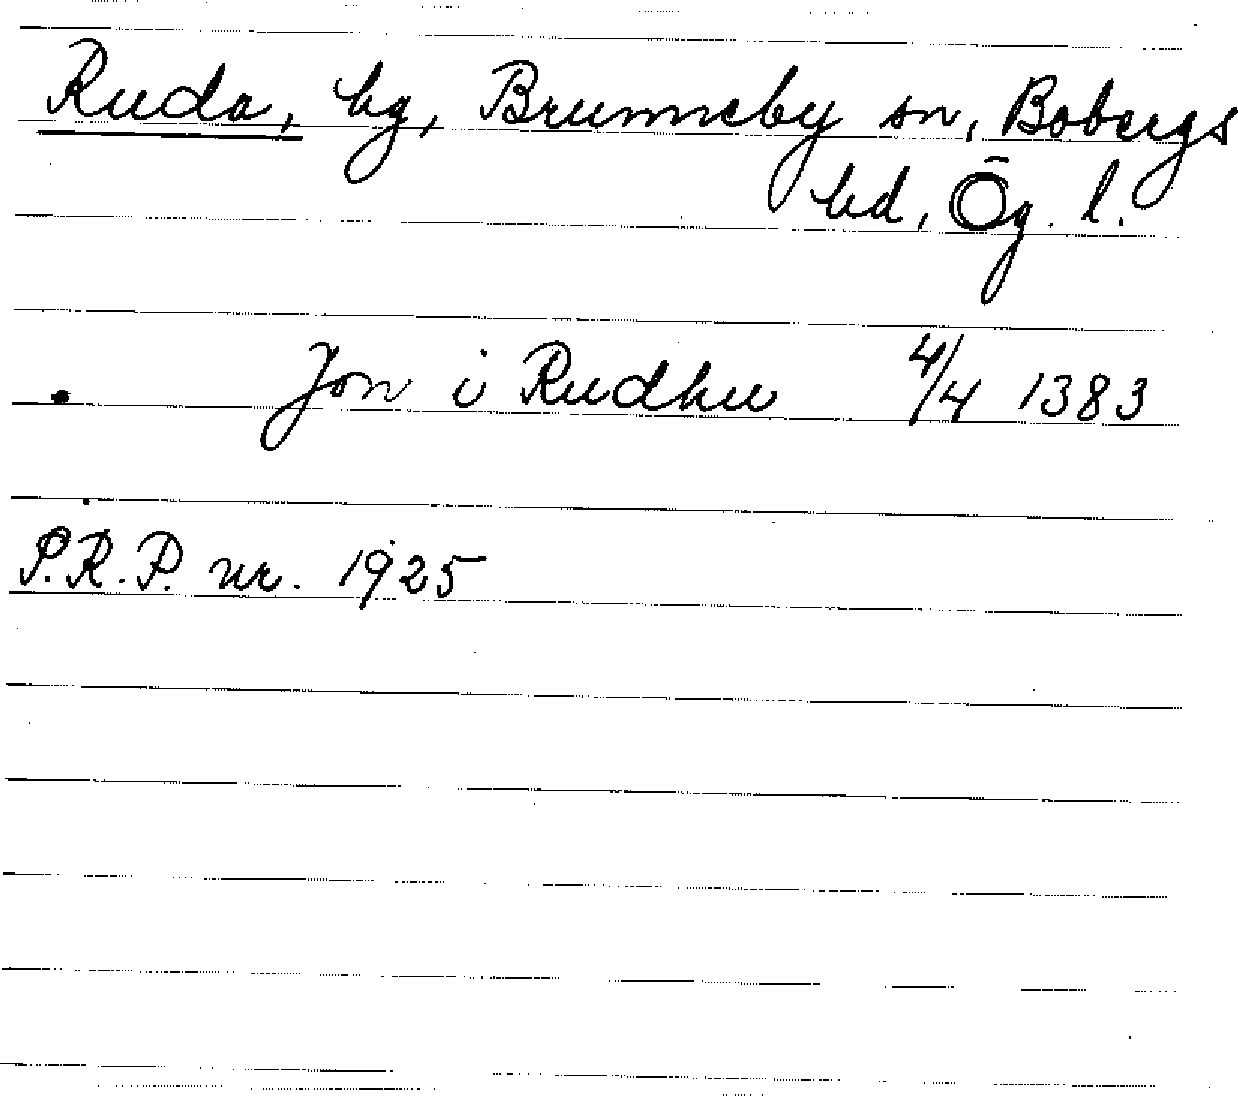 Ruda, by, Brunneby sn, Bobergs
hd, Ög. l.
Jon i Rudhu 4/4 1383
S.R.P. nr. 1925